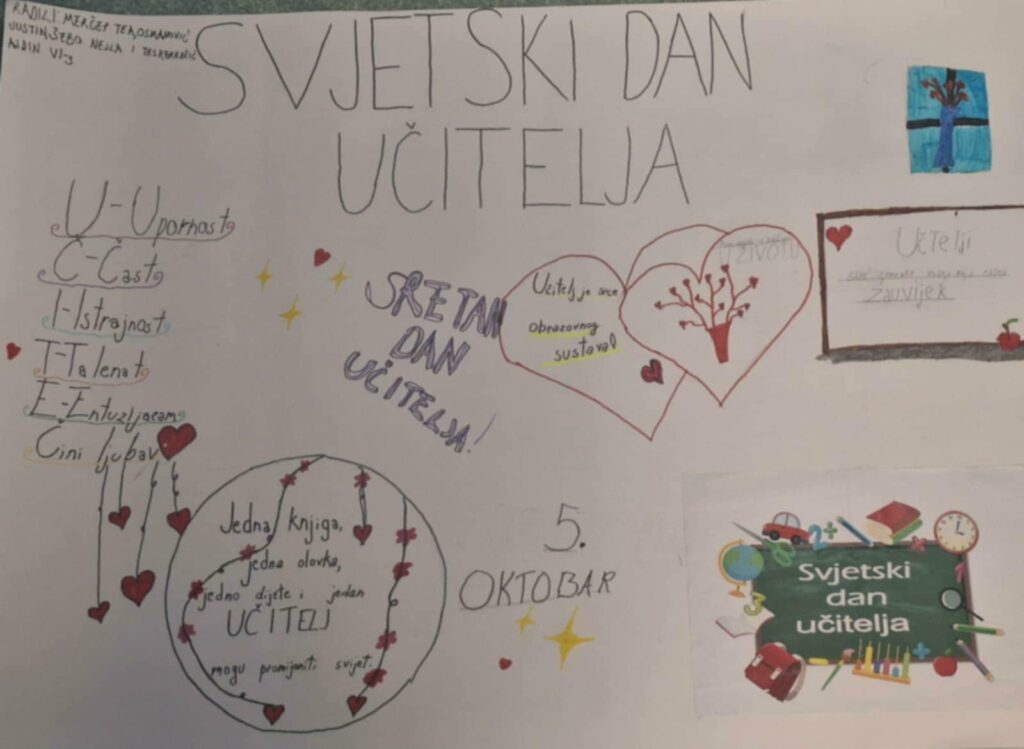 RADILI: MERČEP TEA, OSMANOVIĆ
JUSTIN, ŠEBO NEJLA I TESKEREDŽIĆ
AJDIN VI-3
SVJETSKI DAN
UČITELJA
U-Upornost
Č-Čast
I-Istrajnost
T-Talenat
E-Entuzijazam
Čini ljubav
SRETAN
DAN
UČITELJA!
Učitelj je srce
obrazovnog
sustava!
U ŽIVOTU
Učitelji
zauvijek
Jedna knjiga,
jedna olovka,
jedno dijete i jedan
UČITELJ
mogu promijeniti svijet.
5.
OKTOBAR
Svjetski
dan
učitelja